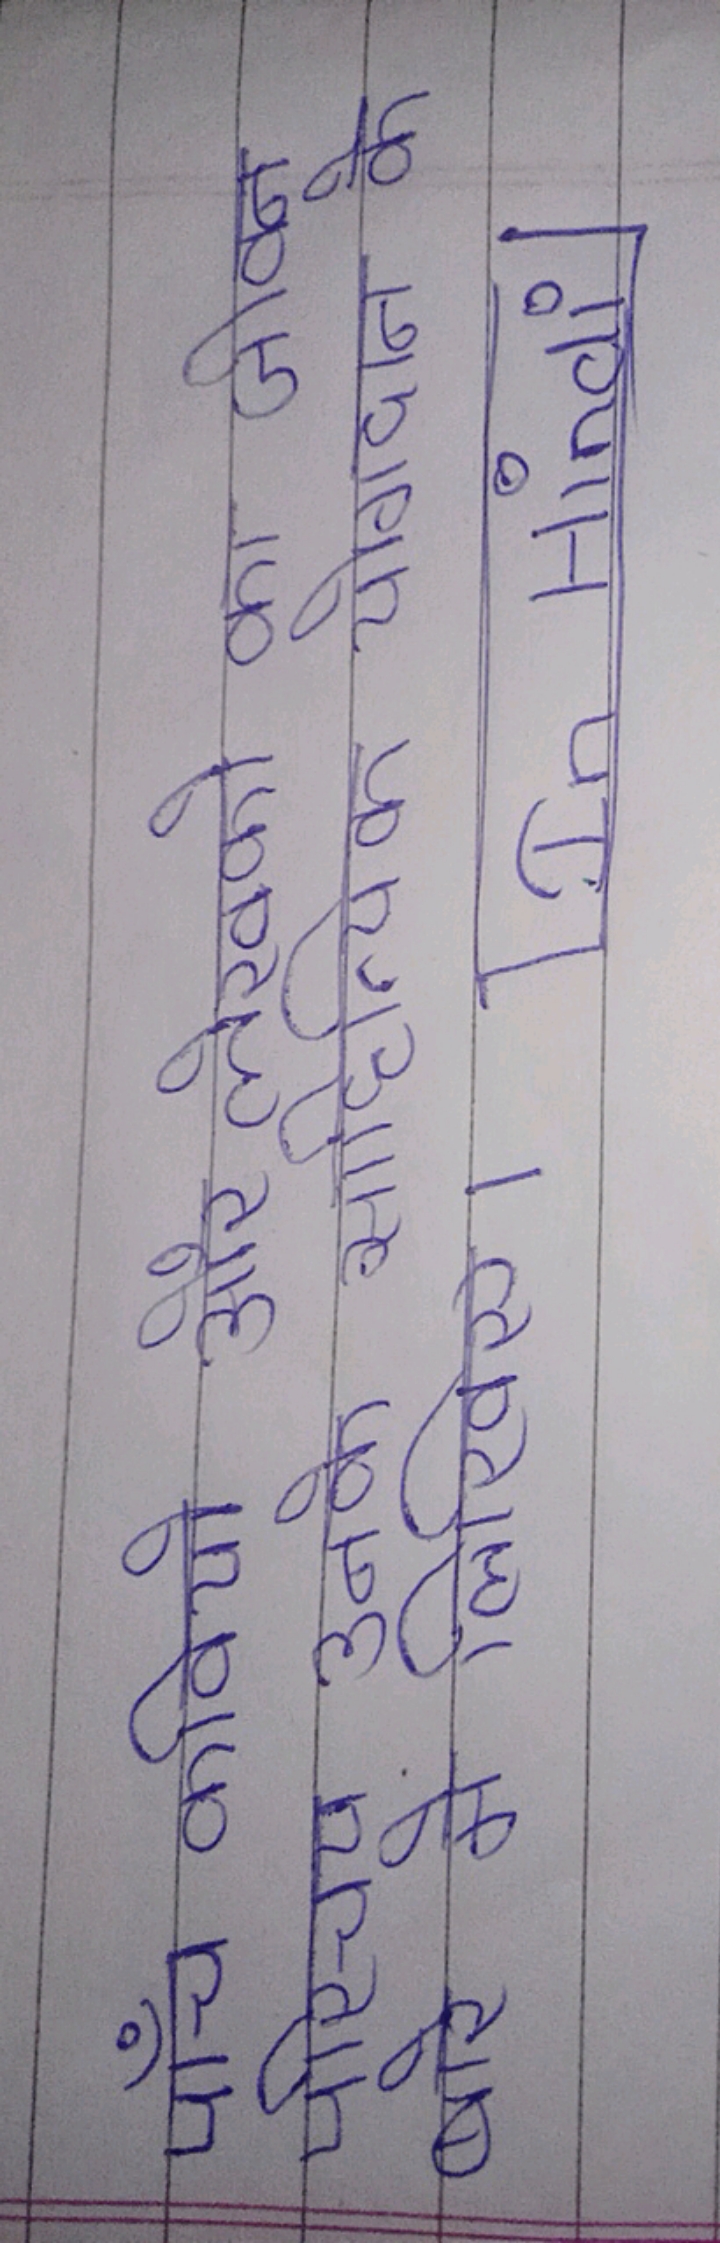 पाँच कवियो और लेखको का जीवन
परिचय उनके साहित्यिक योगदान के
बारे मे लिखिए ।
In Hindi